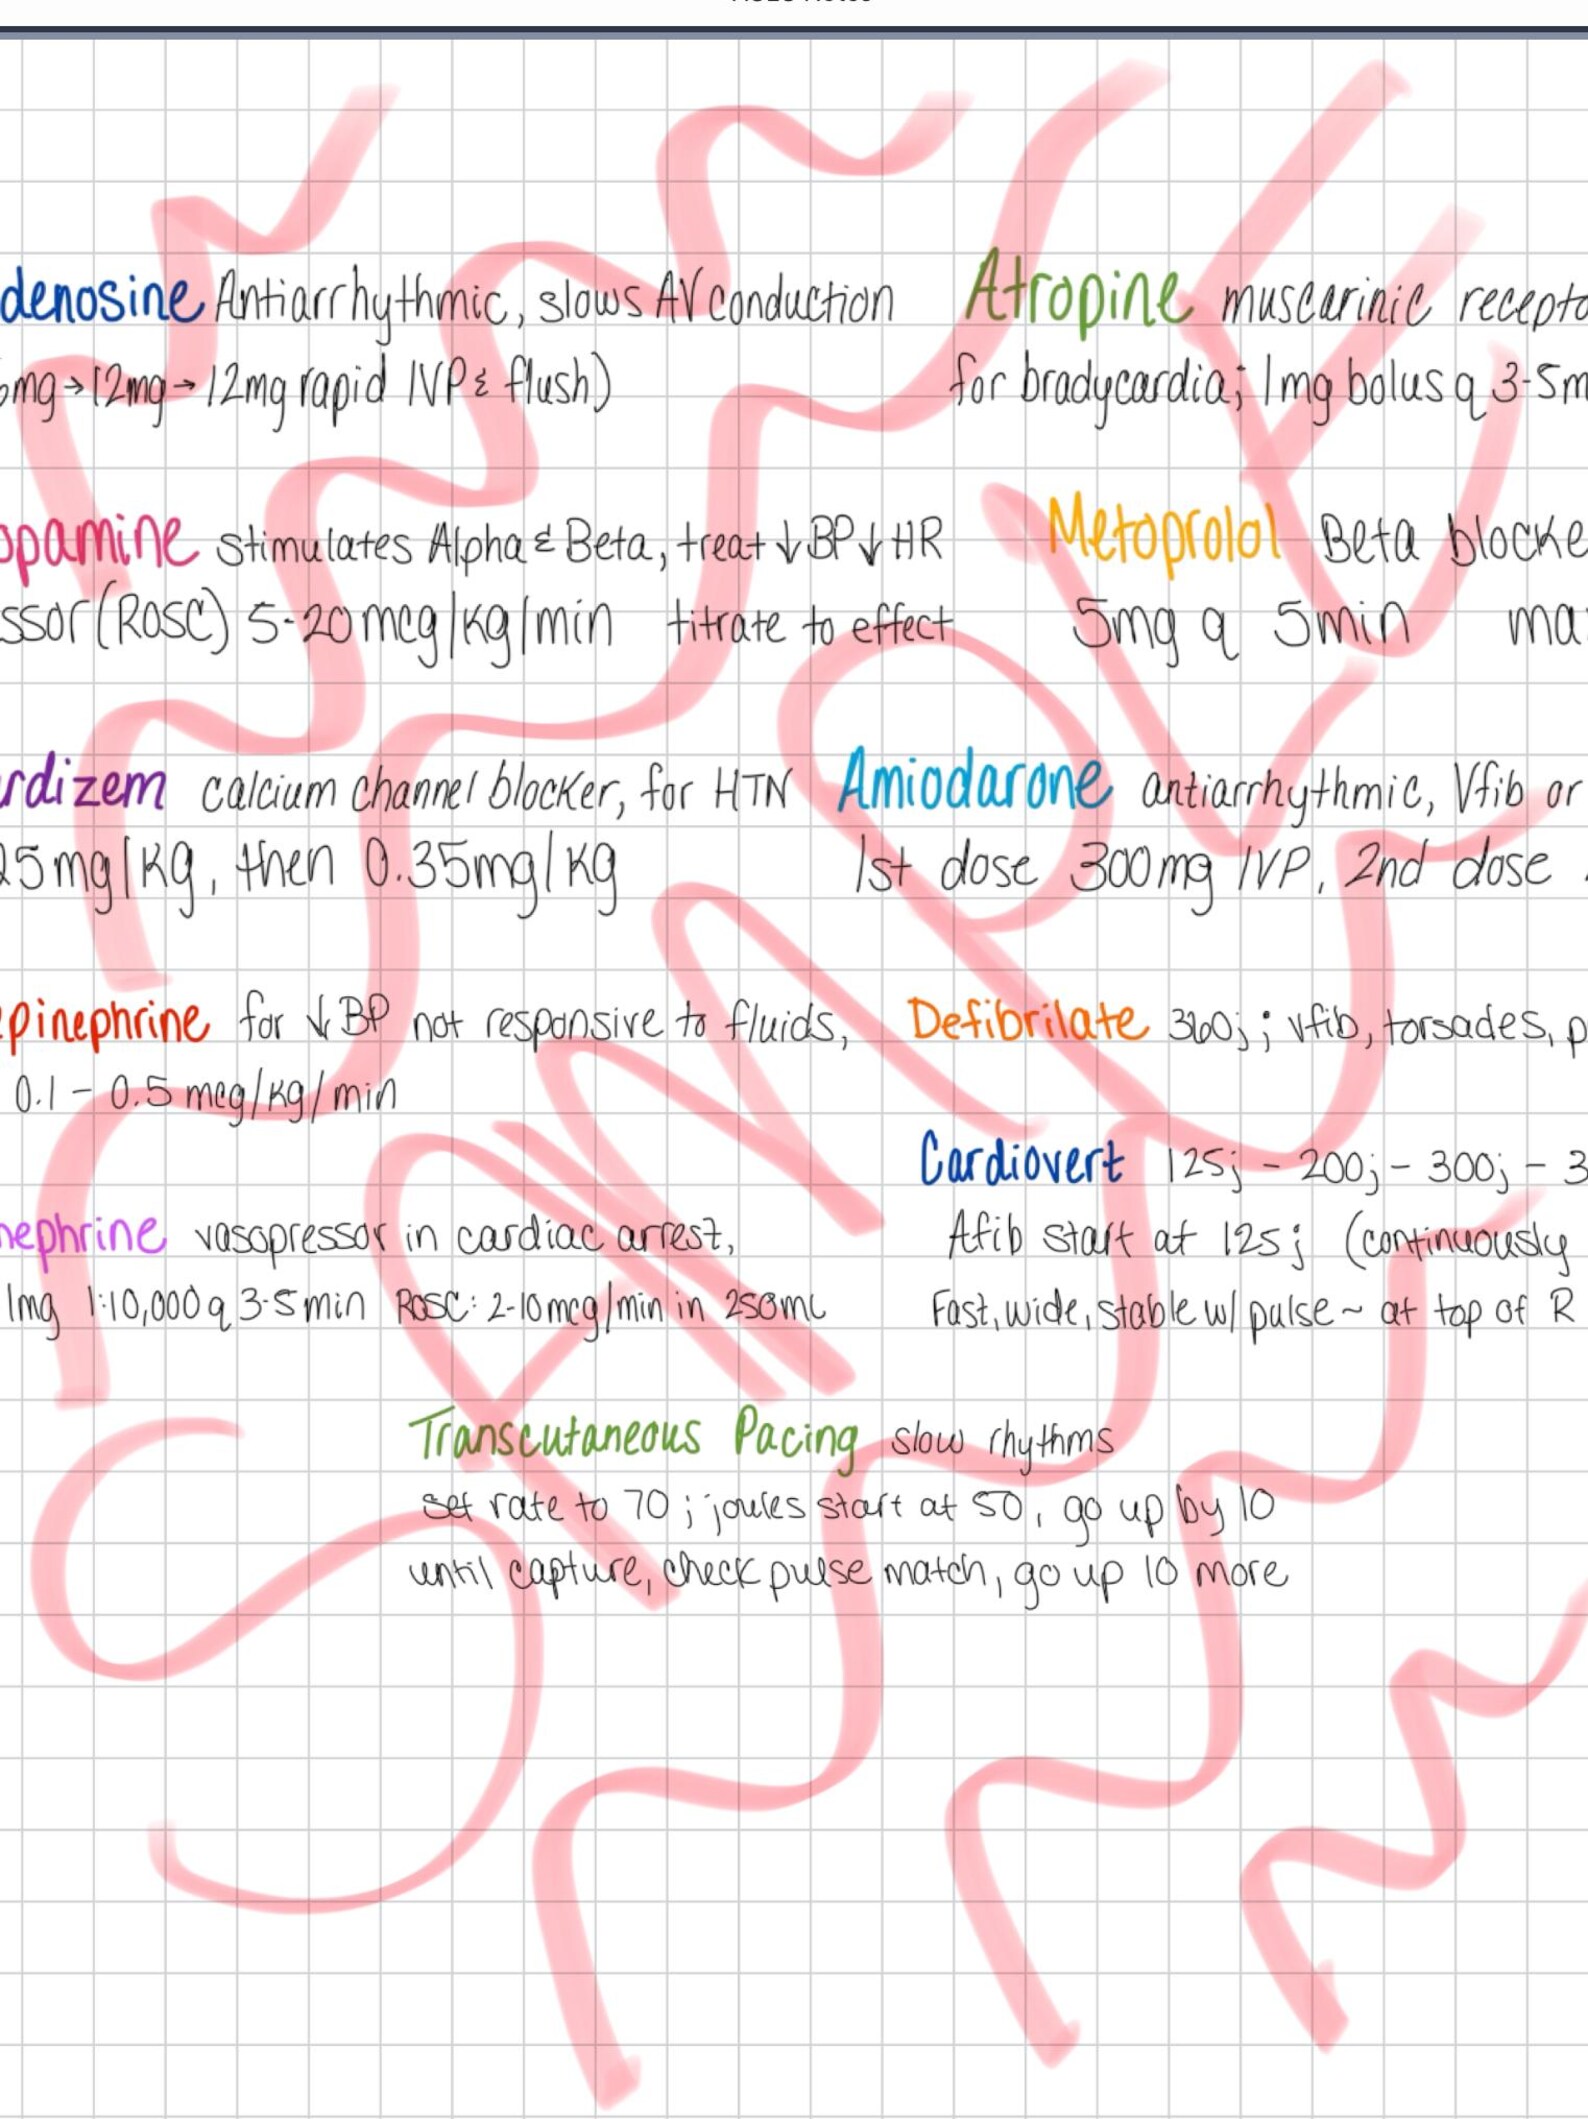 denosine Antiarrhythmic, slows AV conduction
6mg → 12mg → 12mg rapid IVP & flush)
Atropine muscarinic recepto
for bradycardia; 1mg bolus q 3-5m
opamine stimulates Alpha & Beta, treat ↓BP↓HR
ssor (ROSC) 5-20 mcg/kg/min titrate to effect
Metoprolol Beta blocke
5mg q 5min ma
rdizem calcium channel blocker, for HTN
25mg/kg, then 0.35mg/kg
Amiodarone antiarrhythmic, Vfib or
1st dose 300mg IVP, 2nd dose
epinephrine for ↓BP not responsive to fluids,
0.1 - 0.5 mcg/kg/min
Defibrilate 360j; vfib, torsades, p
Cardiovert 125j - 200j - 300j - 3
Afib start at 125j (continuously
Fast, wide, stable w/ pulse ~ at top of R
nephrine vasopressor in cardiac arrest,
1mg 1:10,000 q 3-5min ROSC: 2-10mcg/min in 250mL
Transcutaneous Pacing slow rhythms
set rate to 70; joules start at 50, go up by 10
until capture, check pulse match, go up 10 more
SAMPLE